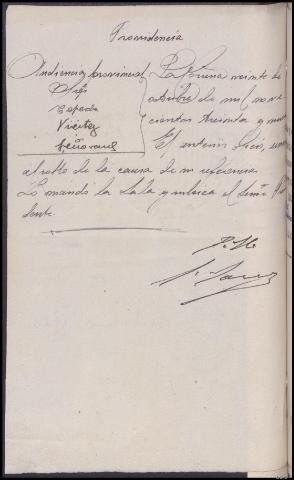 Providencia
Audiencia provincial
Srés
Cepeda
Vieitez
La Coruña veinte de
octubre de mil nove
cientos treinta y nueve
El anterior oficio, únase
al rollo de la causa de su referencia
Lo mandó la Sala y rubrica el Señor Presi
dente.